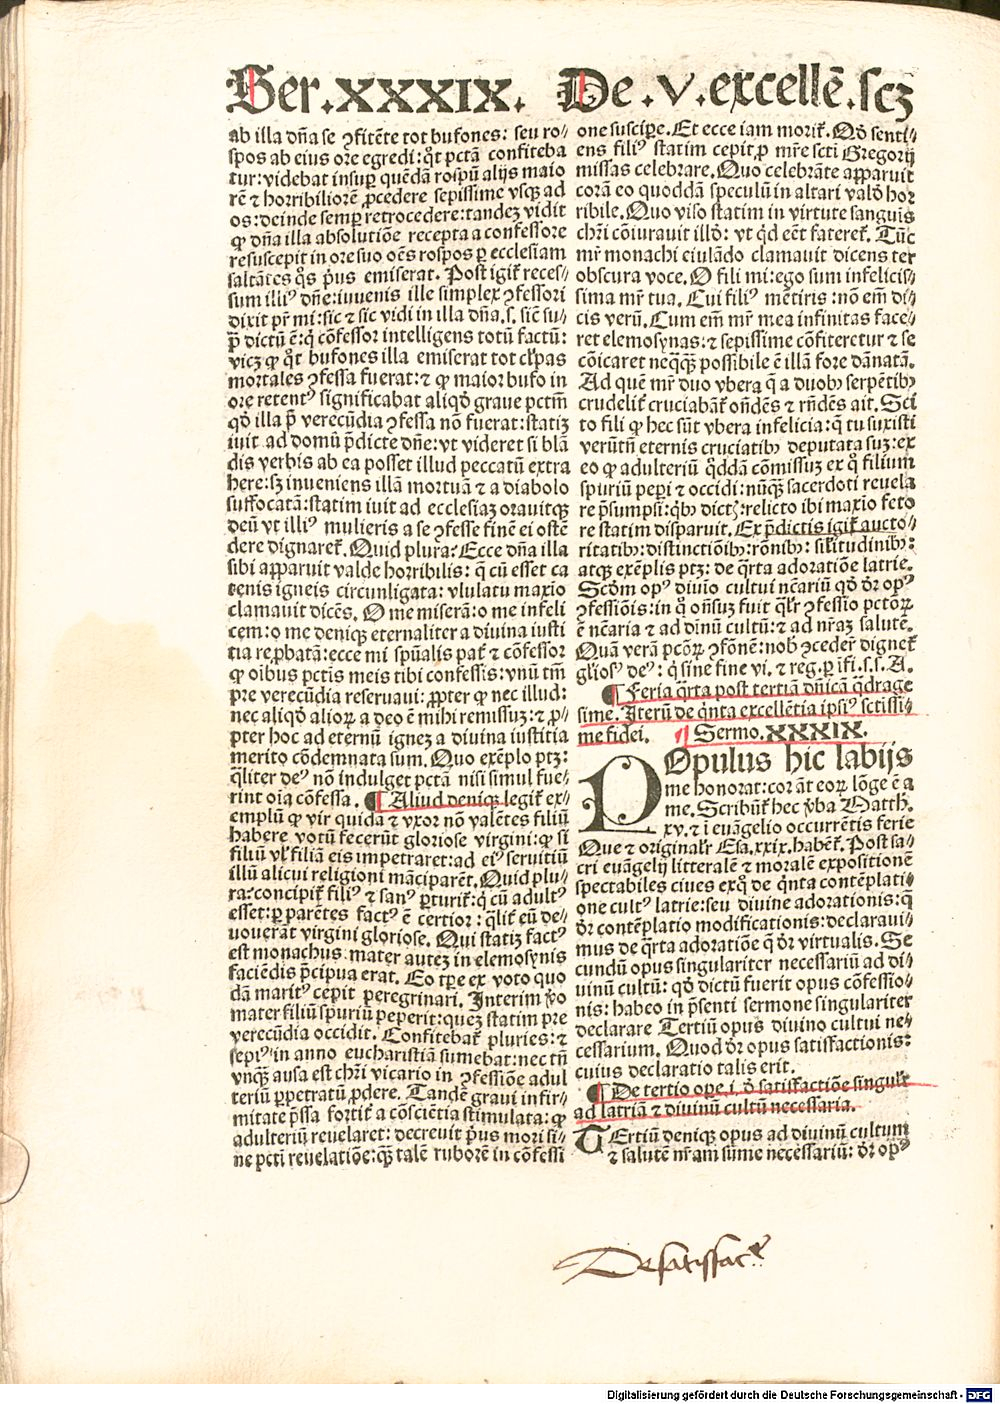 Ser.XXXIX. De.V.excellē.scꝫ
ab illa dña se ꝯfitēte tot bufones: seu ro⸗
spos ab eius ore egredi: qͦt pctā confiteba
tur: videbat insuꝑ quēdā rospū alijs maio
rē ⁊ horribiliorē ꝓcedere sepissime vsqꝫ ad
os: deinde semꝑ retrocedere: tandeꝫ vidit
ꝙ dña illa absolutiōe recepta a confessore
resuscepit in ore suo oēs rospos ꝑ ecclesiam
saltātes qͦs p̄us emiserat. Post igit᷑ reces⸗
sum illiꝰ dñe: iuuenis ille simplex ꝯfessori
dixit pr̄ mi: sic ⁊ sic vidi in illa dña. s. sic̄ su⸗
p̄ dictū ē: qͥ cōfessor intelligens totū factū:
vicꝫ ꝙ qͦt bufones illa emiserat tot cl̓pas
mortales ꝯfessa fuerat: ⁊ ꝙ maior bufo in
ore retentꝰ significabat aliqd̓ graue pctm̄
qd̓ illa p̄ verecūdia ꝯfessa nō fuerat: statiꝫ
iuit ad domū p̄dicte dñe: vt videret si blā
dis verbis ab ea posset illud peccatū extra
here: sꝫ inueniens illā mortuā ⁊ a diabolo
suffocatā: statim iuit ad ecclesiaꝫ orauitqꝫ
deū vt illiꝰ mulieris a se ꝯfesse finē ei oste
dere dignaret᷑. Quid plura: Ecce dña illa
sibi apparuit valde horribilis: q̄ cū esset ca
tenis igneis circunligata: vlulatu maxīo
clamauit dicēs. O me miserā: o me infeli
cem: o me deniqꝫ eternaliter a diuina iusti
tia reꝓbatā: ecce mi spūalis pat̄ ⁊ cōfessor
ꝙ oībus pctis meis tibi confessis: vnū tm̄
pre verecūdia reseruaui: ꝓpter ꝙ nec illud:
nec aliqd̓ alioꝝ a deo ē mihi remissuꝫ: ⁊ ꝓ⸗
pter hoc ad eternū igneꝫ a diuina iustitia
merito cōdemnata sum. Quo exēplo ptꝫ:
qͣliter deꝰ nō indulget pctā nisi simul fue⸗
rint oīa cōfessa. ¶ Aliud deniqꝫ legit᷑ ex⸗
emplū ꝙ vir quidā ⁊ vxor nō valētes filiū
habere votū fecerūt gloriose virgini: ꝙ si
filiū vl̓ filiā eis impetraret: ad eiꝰ seruitiū
illū alicui religioni māciparēt. Quid plu⸗
ra: concipit᷑ filiꝰ ⁊ sanꝰ ꝑturit᷑: q̄ cū adultꝰ
esset: ꝑ parētes factꝰ ē certior: qͣlit᷑ eū de⸗
uouerāt virgini gloriose. Qui statiꝫ factꝰ
est monachus: mater auteꝫ in elemosynis
faciēdis p̄cipua erat. Eo tꝑe ex voto quo
dā maritꝰ cepit peregrinari. Interim v̓o
mater filiū spuriū peperit: queꝫ statim pre
verecūdia occidit. Confitebat᷑ pluries: ⁊
sepiꝰ in anno eucharistiā sumebat: nec tn̄
vnqꝫ ausa est chr̄i vicario in ꝯfessiōe adul
teriū ꝑpetratū ꝓdere. Tandē graui infir⸗
mitate p̄ssa fortit᷑ a cōsciētia stimulata: ꝙ
adulteriū reuelaret: decreuit p̄us mori si⸗
ne pctī reuelatiōe: qꝫ talē ruborē in cōfessi
one suscipe. Et ecce iam morit᷑. Qd̓ senti⸗
ens filiꝰ statim cepit ꝓ mr̄e scti Gregorij
missas celebrare. Quo celebrāte apparuit
corā eo quoddā speculū in altari vald̓ hor
ribile. Quo viso statim in virtute sanguis
chr̄i cōiurauit illd̓: vt qd̓ eēt fateret᷑. Tūc
mr̄ monachi eiulādo clamauit dicens ter
obscura voce. O fili mi: ego sum infelicis⸗
sima mr̄ tua. Cui filiꝰ mētiris: nō em̄ di⸗
cis verū. Cum em̄ mr̄ mea infinitas face⸗
ret elemosynas: ⁊ sepissime cōfiteretur ⁊ se
cōicaret neqꝫqꝫ possibile ē illā fore dānatā.
Ad quē mr̄ duo vbera q̄ a duobꝰ serpētibꝰ
crudelit᷑ cruciabāt᷑ on̄dēs ⁊ rn̄dēs ait. Sci
to fili ꝙ hec sūt vbera infelicia: q̄ tu suxisti
verūtn̄ eternis cruciatibꝰ deputata suꝫ: ex
eo ꝙ adulteriū qͦddā cōmissuꝫ ex qͦ filium
spuriū peperi ⁊ occidi: nūqꝫ sacerdoti reuela
re p̄sumpsi: qͥbꝰ dictꝭ: relicto ibi maxīo feto
re statim disparuit. Ex p̄dictis igit᷑ aucto⸗
ritatibꝰ: distinctiōibꝰ: rōnibꝰ: sil̓itudinibꝰ:
atqꝫ exēplis ptꝫ: de qͣrta adoratiōe latrie.
Scd̓m opꝰ diuīo cultui nc̄ariū qd̓ dr̄ opꝰ
ꝯfessiōis: in qͦ on̄suꝫ fuit qͣlr̄ ꝯfessio pctoꝝ
ē nc̄aria ⁊ ad dinū cultū: ⁊ ad nr̄aꝫ salutē.
Quā verā pctoꝝ ꝯfōnē: nob̓ ꝯceder̄ dignet᷑
gl̓iosꝰ deꝰ: qͥ sine fine vi. ⁊ reg. ꝑ īfi. s. s. A.
¶ Feria qͣrta post tertiā dn̄icā qͣdrage
sime. Iterū de qͥnta excellētia ipsiꝰ sctissi⸗
me fidei. ¶ Sermo. XXXIX.
POpulus hic labijs
me honorat: cor āt eoꝝ lōge ē a
me. Scribūt᷑ hec v̓ba Matth.
xv. ⁊ ī euāgelio occurrētis ferie
Que ⁊ originalr̄ Esa. xxix. habēt᷑. Post sa⸗
cri euāgelij litteralē ⁊ moralē expositionē
spectabiles ciues exqͦ de qͥnta contēplati⸗
one cultꝰ latrie: seu diuine adorationis: q̄
dr̄ contēplatio modificationis: declaraui⸗
mus de qͣrta adoratiōe q̄ dr̄ virtualis. Se
cundū opus singulariter necessariū ad di⸗
uinū cultū: qd̓ dictū fuerit opus cōfessio⸗
nis: habeo in p̄senti sermone singulariter
declarare Tertiū opus diuino cultui ne⸗
cessarium. Quod dr̄ opus satisfactionis:
cuius declaratio talis erit.
¶ De tertio oꝑe. i. d̓ satisfactiōe singulr̄
ad latriā ⁊ diuinū cultū necessaria.
TErtiū deniqꝫ opus ad diuinū cultum
⁊ salutē nr̄am sūme necessariū: dr̄ opꝰ
De satisfac
Digitalisierung gefördert durch die Deutsche Forschungsgemeinschaft - DFG